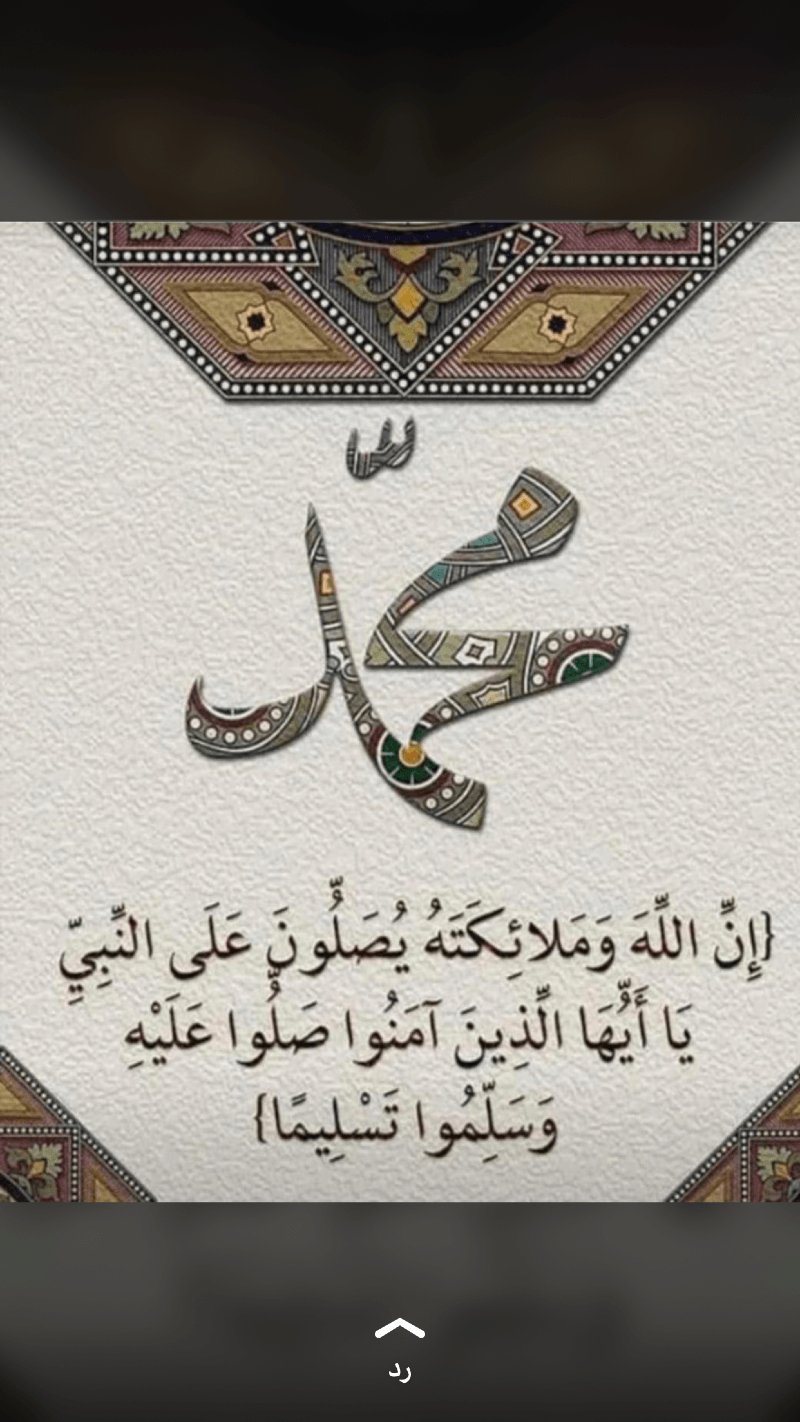 محمّد
{إِنَّ اللَّهَ وَمَلائِكَتَهُ يُصَلُّونَ عَلَى النَّبِيِّ
يَا أَيُّهَا الَّذِينَ آمَنُوا صَلُّوا عَلَيْهِ
وَسَلِّمُوا تَسْلِيمًا}
رد